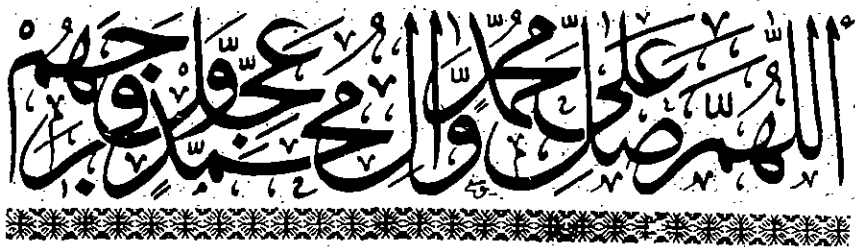 اللّٰهُمَّ صَلِّ عَلٰى مُحَمَّدٍ وَّاٰلِ مُحَمَّدٍ وَّعَجِّلْ فَرَجَهُمْ